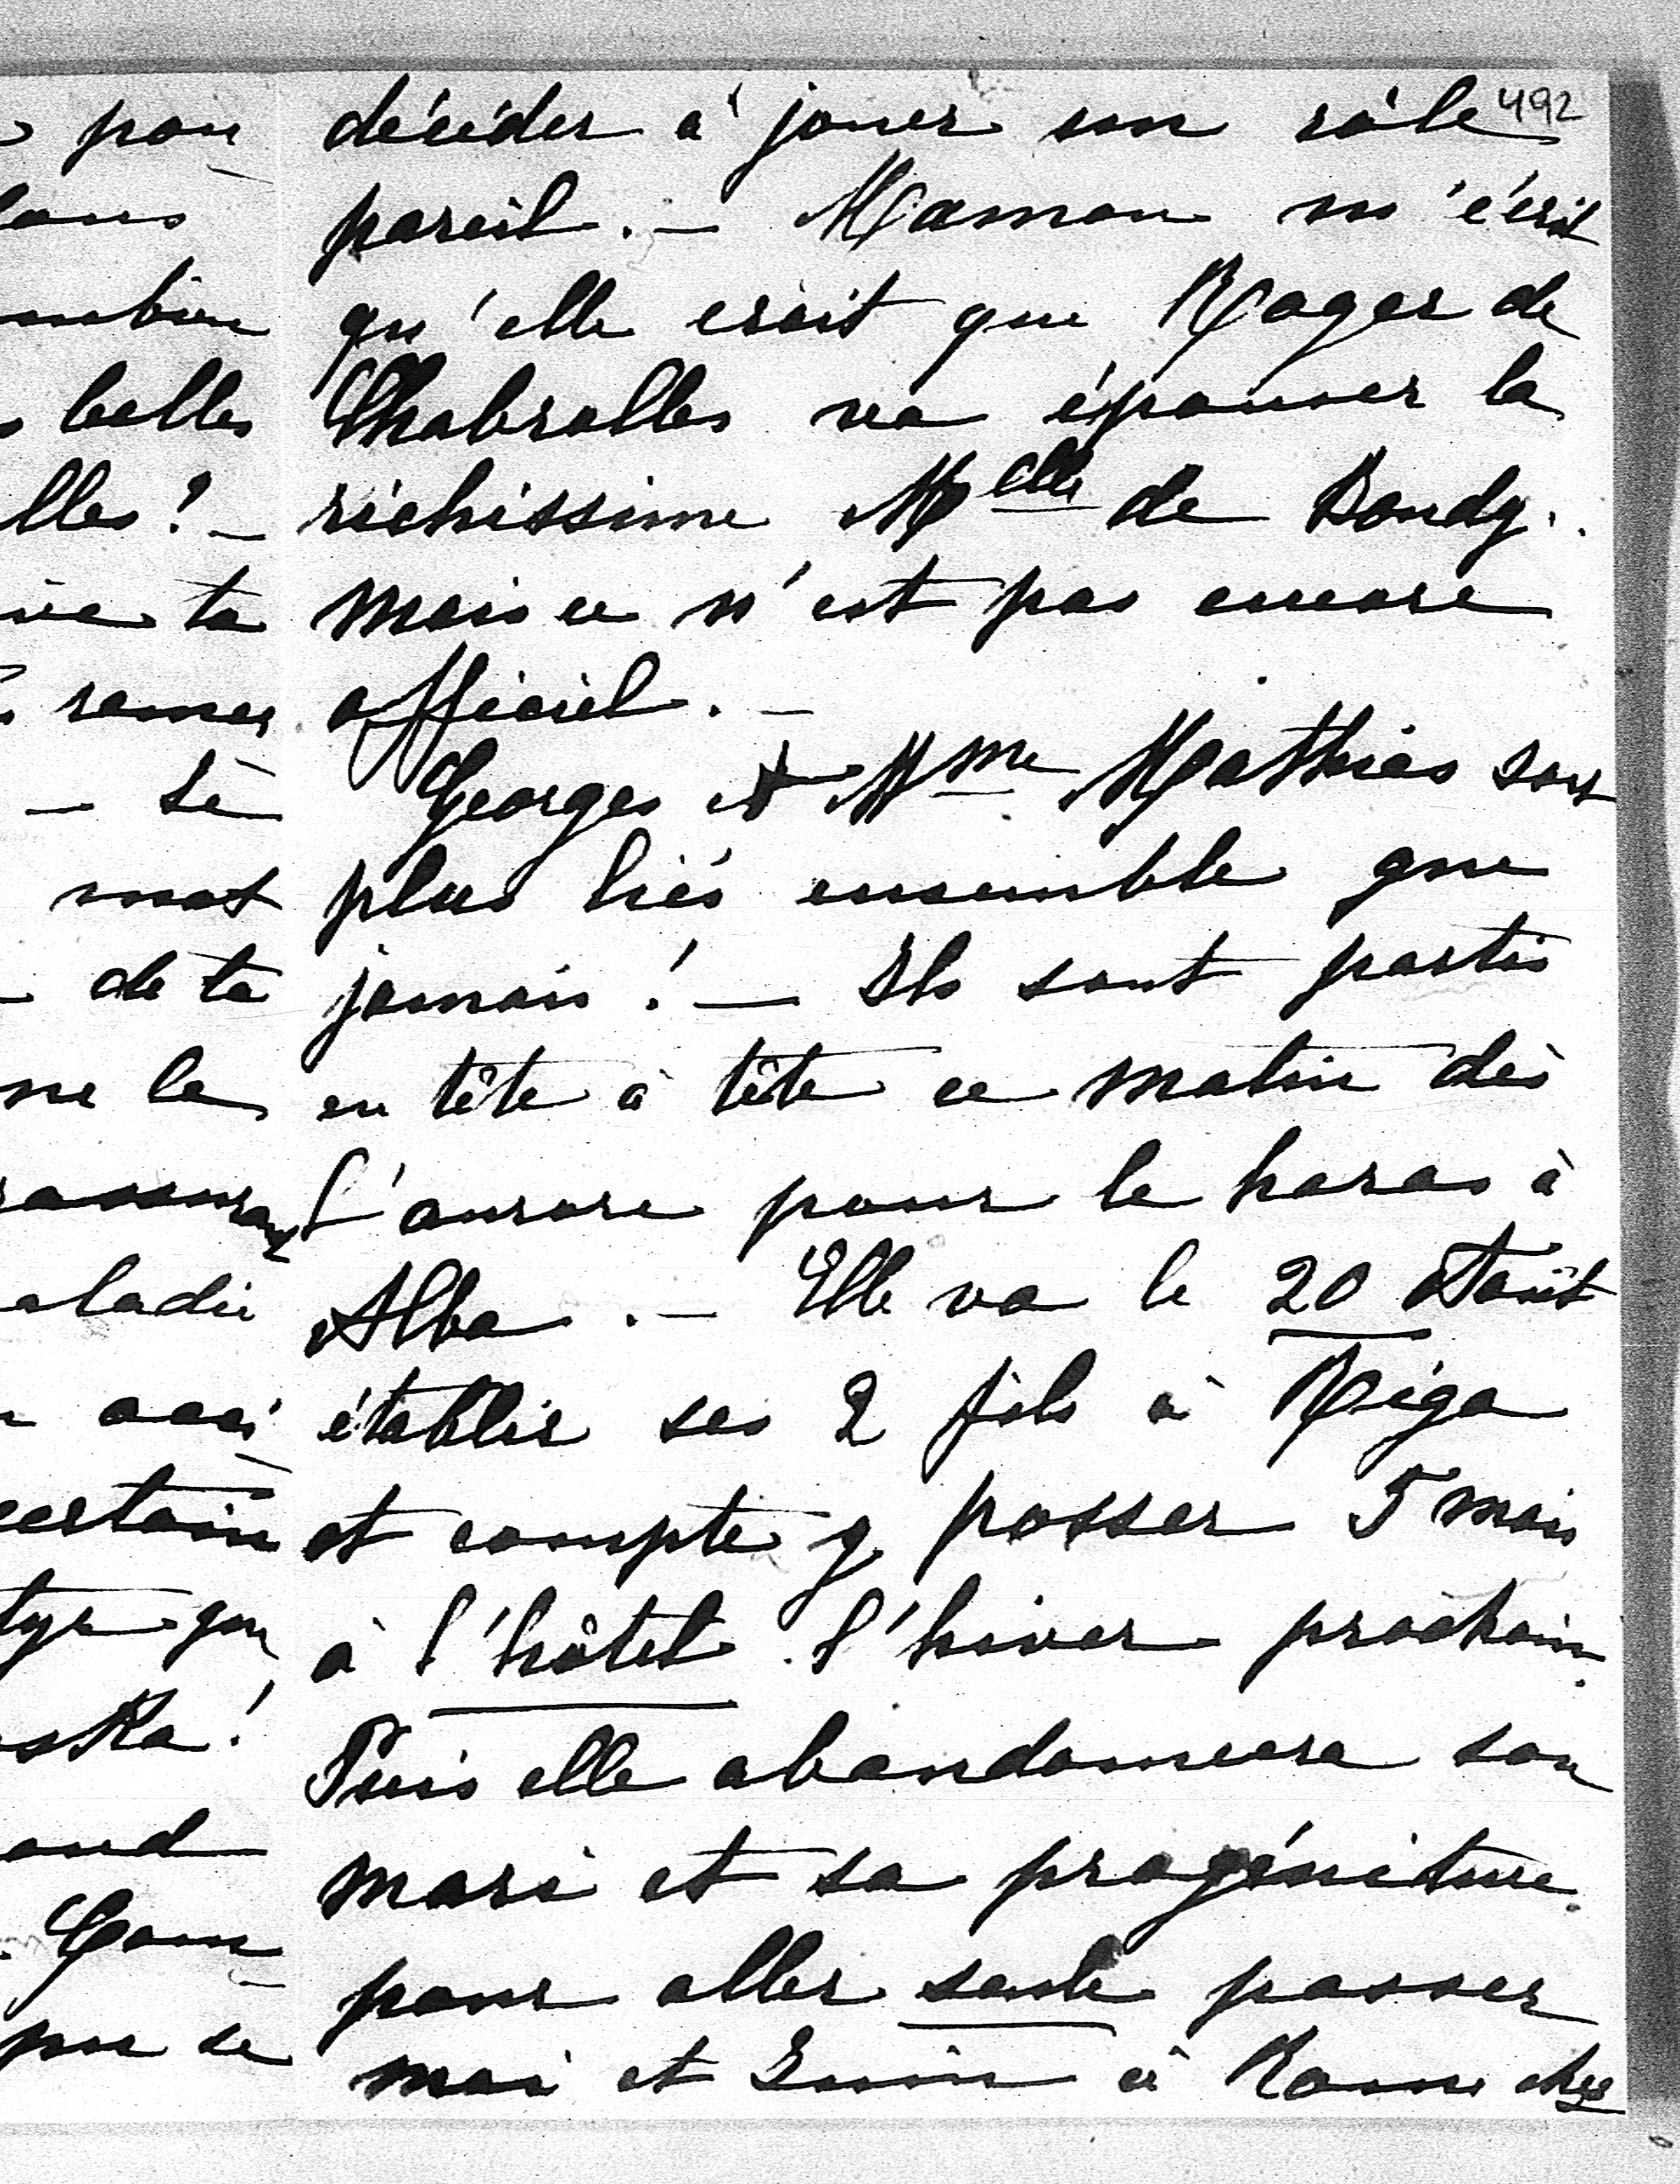 492
décider à jouer un rôle
pareil. — Maman m'écrit
qu'elle croit que Roger de
Chabrolles va épouser la
richissime Melle de Bondy.
mais ce n'est pas encore
officiel. —
Georges et Mme Mathias sont
plus liés ensemble que
jamais ! — Ils sont partis
en tête à tête ce matin dès
l'aurore pour le haras à
Alba. — Elle va le 20 Août
établir ses 2 fils à Riga
et compte y passer 5 mois
à l'hôtel l'hiver prochain.
Puis elle abandonnera son
mari et sa progéniture
pour aller seule passer
mai et Juin à Rome chez
pou
belles
lles ? —
ta
— Si
mot
de ta
le
aladie
certain
ska !
Com
pu se